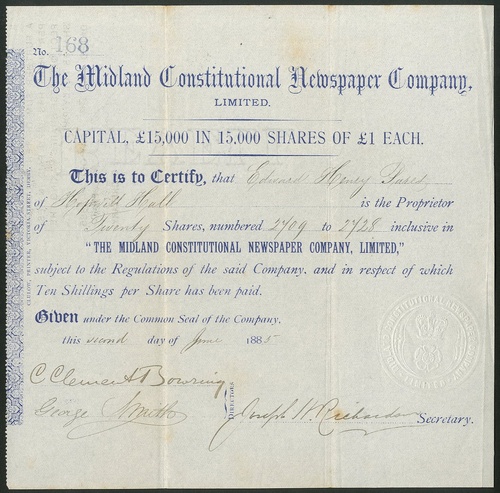 No. 168
The Midland Constitutional Newspaper Company,
LIMITED.
CAPITAL, £15,000 IN 15,000 SHARES OF £1 EACH.
This is to Certify, that Edward Henry Pares
of Hopwell Hall is the Proprietor
of Twenty Shares, numbered 2709 to 2728 inclusive in
"THE MIDLAND CONSTITUTIONAL NEWSPAPER COMPANY, LIMITED,"
subject to the Regulations of the said Company, and in respect of which
Ten Shillings per Share has been paid.
Given under the Common Seal of the Company.
this second day of June 1885
C Clement Bowring
George Smith
DIRECTORS
Joseph H. Richardson Secretary.